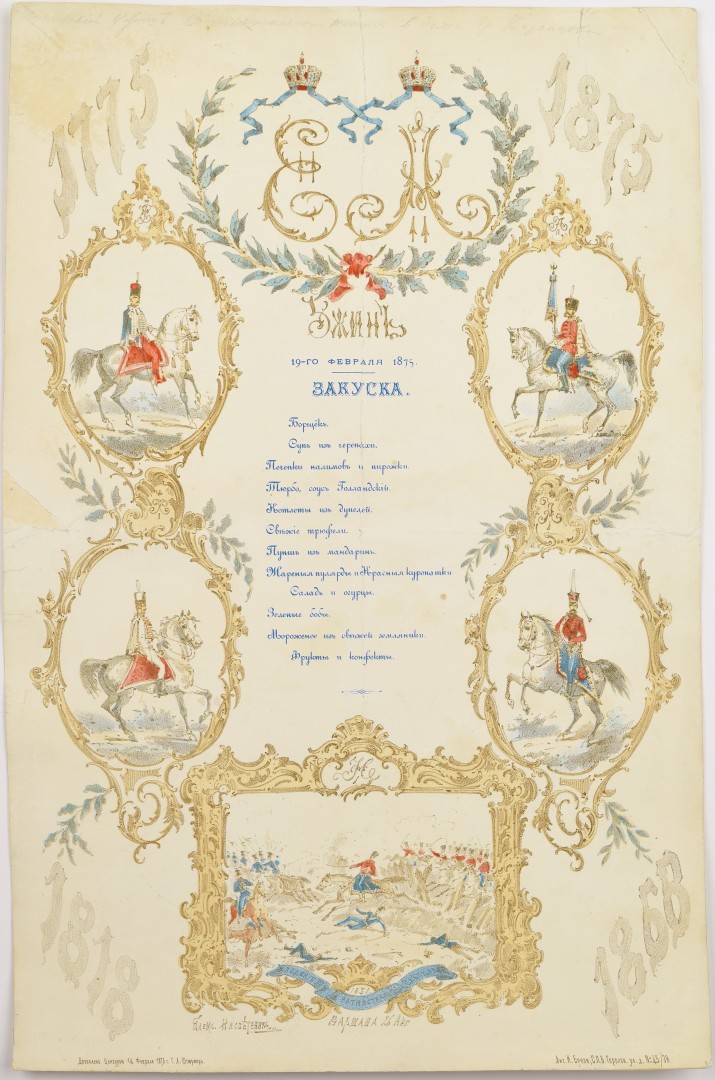 1775
1875
Е А
Ужинъ
19-ГО ФЕВРАЛЯ 1875.
ЗАКУСКА.
Борщёкъ.
Супъ изъ черепахи.
Печенки налимовъ и пирожки.
Тюрбо, соусъ Голландскій.
Котлеты изъ дупелей.
Свѣжіе трюфели.
Пуншъ изъ мандаринъ.
Жареныя пулярды и Красныя куропатки
Салатъ и огурцы.
Зеленые бобы.
Мороженое изъ свѣжей земляники.
Фрукты и конфекты.
1818
1868
ВАРШАВА 25 Авг
Дозволено цензурою 14 Февраля 1875 г.